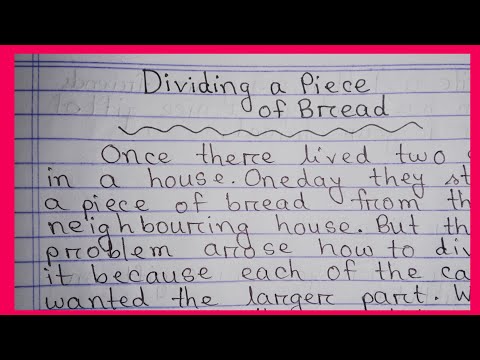 Dividing a Piece
of Bread
Once there lived two
in a house. Oneday they st
a piece of bread from th
neighbouring house. But th
problem arose how to div
it because each of the ca
wanted the larger part. W